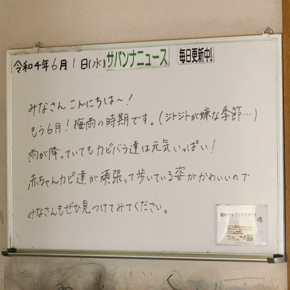 令和4年6月1日(水)サバンナニュース 毎日更新中!
みなさん こんにちは〜!
もう6月!梅雨の時期です。(ジトジトが嫌な季節…)
雨が降っていてもカピバラ達は元気いっぱい!
赤ちゃんカピ達が頑張って歩いている姿がかわいいので
みなさんもぜひ見つけてみてください。